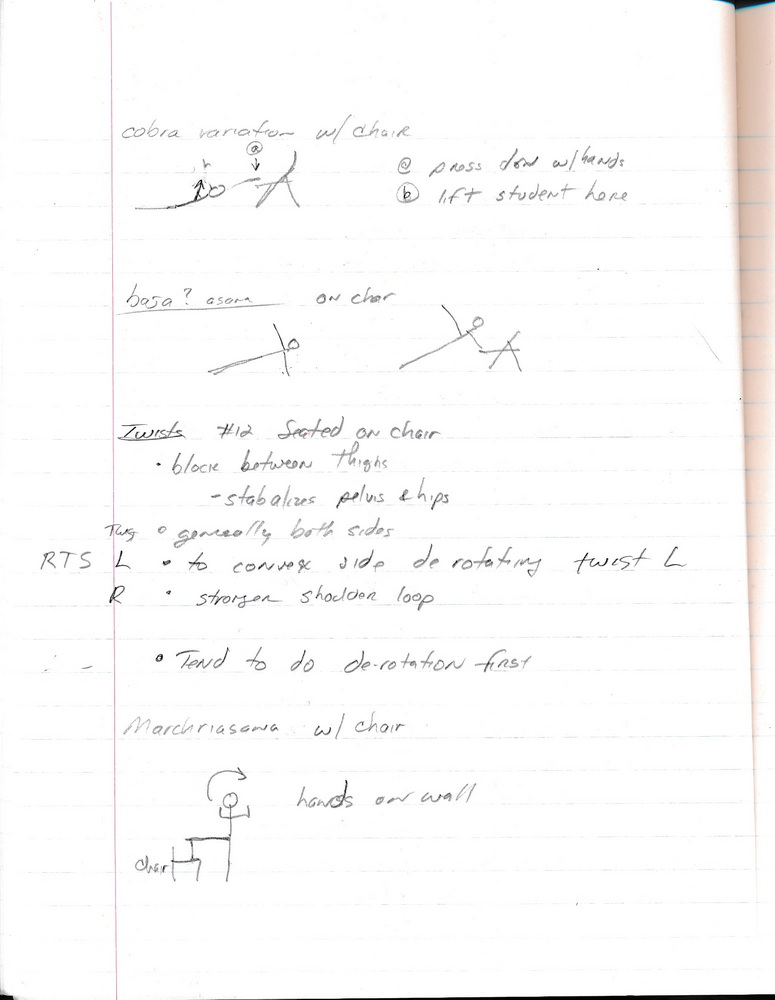 cobra variation w/ chair
ⓐ
ⓐ press down w/hands
b
ⓑ lift student here
basa? asana on chair
Twists #12 Seated on chair
• block between thighs
- stabalizes pelvis & hips
• generally both sides
RTS L • to convex side de rotating twist L
R • stronger shoulder loop
• Tend to do de-rotation first
Marchriasana w/ chair
hands on wall
chair